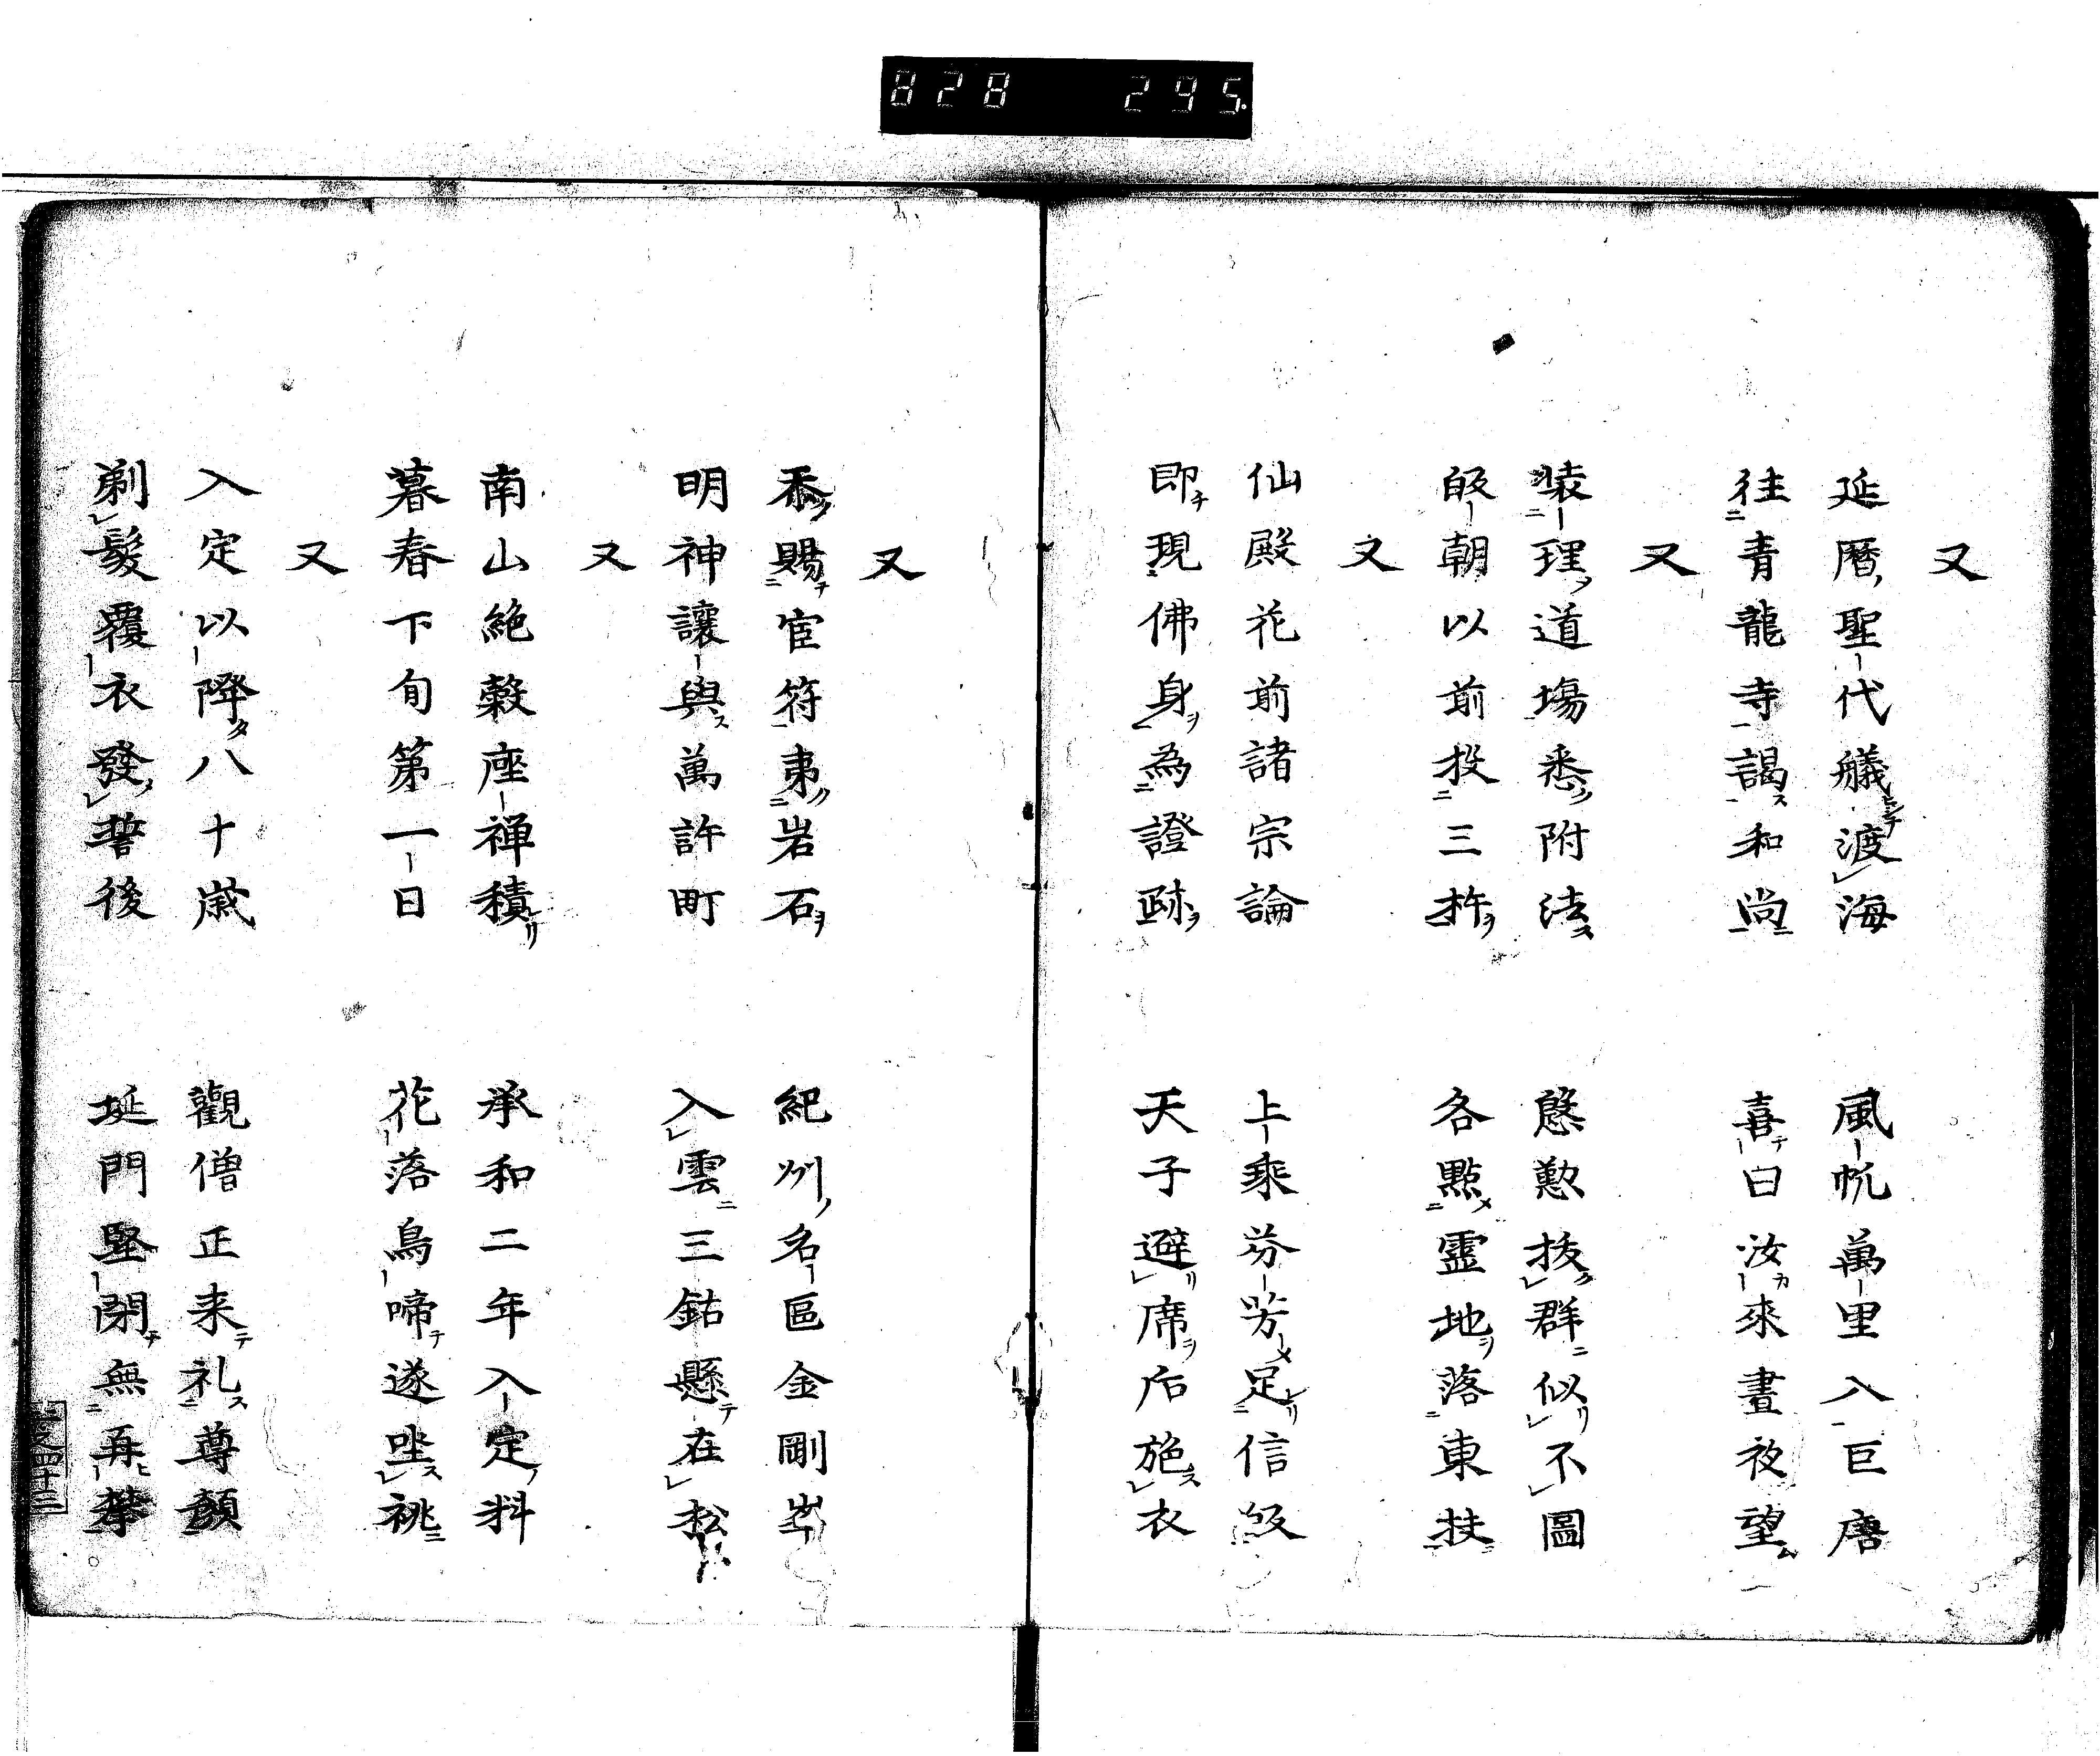 828 295
又
延暦聖代艤渡海 風帆萬里入巨唐
往青龍寺謁和尚 喜曰汝來晝夜望
又
理道場悉附法 慇懃拔群似不圖
皈朝以前投三杵 各點靈地落東扶
又
仙殿花前諸宗論 上乘芬芳足信皈
即現佛身為證跡 天子避席后施衣
又
忝賜官符夷岩石 紀州名區金剛峯
明神讓與萬許町 入雲三鈷懸在松
又
南山絶穀座禅積 承和二年入定料
暮春下旬第一日 花落鳥啼遂坐祧
又
入定以降八十歳 觀僧正来礼尊顔
剃髮覆衣發誓後 埏門堅閇無再攀